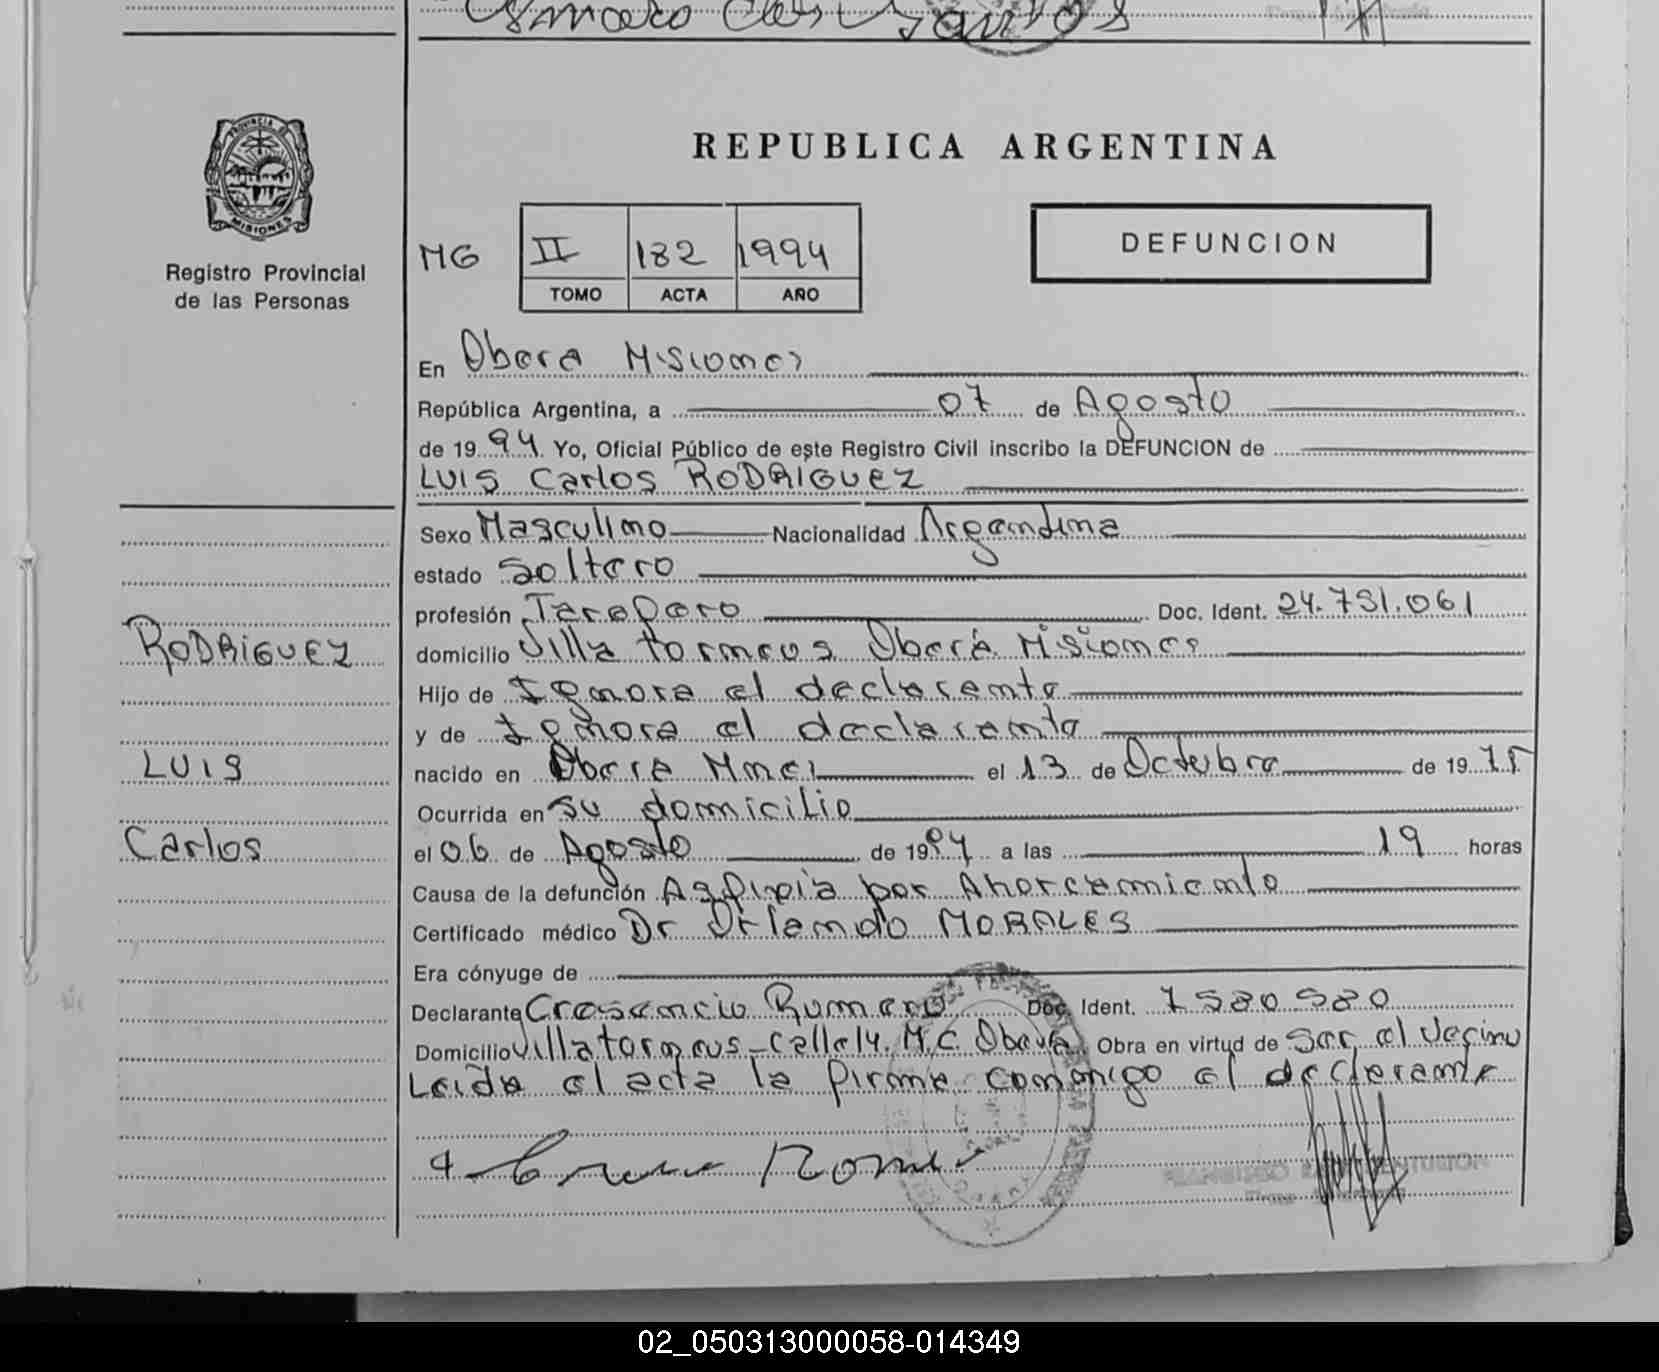 PROVINCIA DE
MISIONES
Registro Provincial
de las Personas
REPUBLICA ARGENTINA
MG II 182 1994
TOMO ACTA AÑO
DEFUNCION
En Obera Misiones
República Argentina, a 07 de Agosto
de 1994 Yo, Oficial Público de este Registro Civil inscribo la DEFUNCION de
LUIS Carlos RODRIGUEZ
Sexo Masculino Nacionalidad Argentina
estado Soltero
profesión Tarefero Doc. Ident. 24.731.061
domicilio Villa torneus Oberá Misiones
Hijo de Ignora el declarante
y de Ignora el declarante
nacido en Obera Mnes el 13 de Octubre de 1975
Ocurrida en su domicilio
el 06 de Agosto de 1994 a las 19 horas
Causa de la defunción Asfixia por Ahorcamiento
Certificado médico Dr Orlando MORALES
Era cónyuge de
Declarante Cresencio Romero Doc. Ident. 7580580
Domicilio Villa torneus - Calle 14. M.C. Obera Obra en virtud de Ser el Vecino
Leida el acta la firma conmigo el declarante
RODRIGUEZ
LUIS
Carlos
02_050313000058-014349